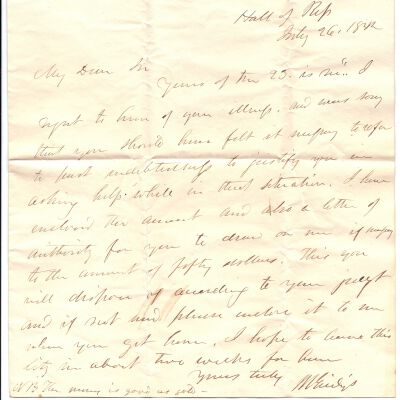 Hall of Reps
July 26, 1842
My Dear Sir
Yours of the 23. is rec. I
regret to hear of your illness. and was sorry
that you should have felt it necessary to refer
to past indebtedness to justify you in
asking help while in that situation. I have
enclosed the amount and also a letter of
authority for you to draw on me if necessary
to the amount of fifty dollars. This you
will dispose of according to your
and if not please enclose it to me
when you get home. I hope to leave this
City in about two weeks for home
Yours truly
NB The money is good as gold -